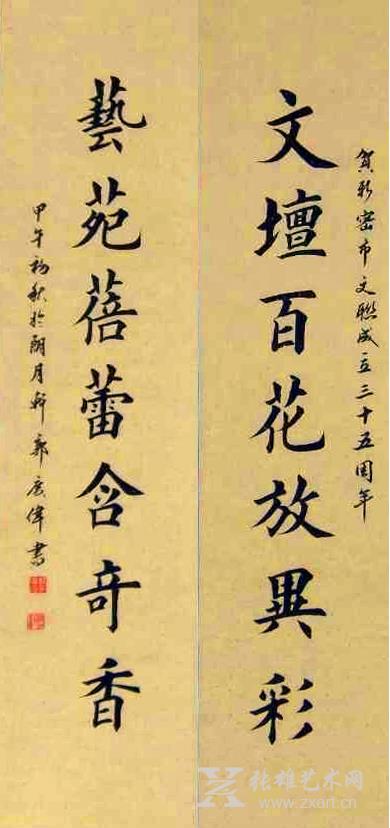 賀新密市文聯成立三十五周年
文壇百花放異彩
藝苑蓓蕾含奇香
甲午初秋於朗月軒郭彦偉書
张雄艺术网
www.zxart.cn